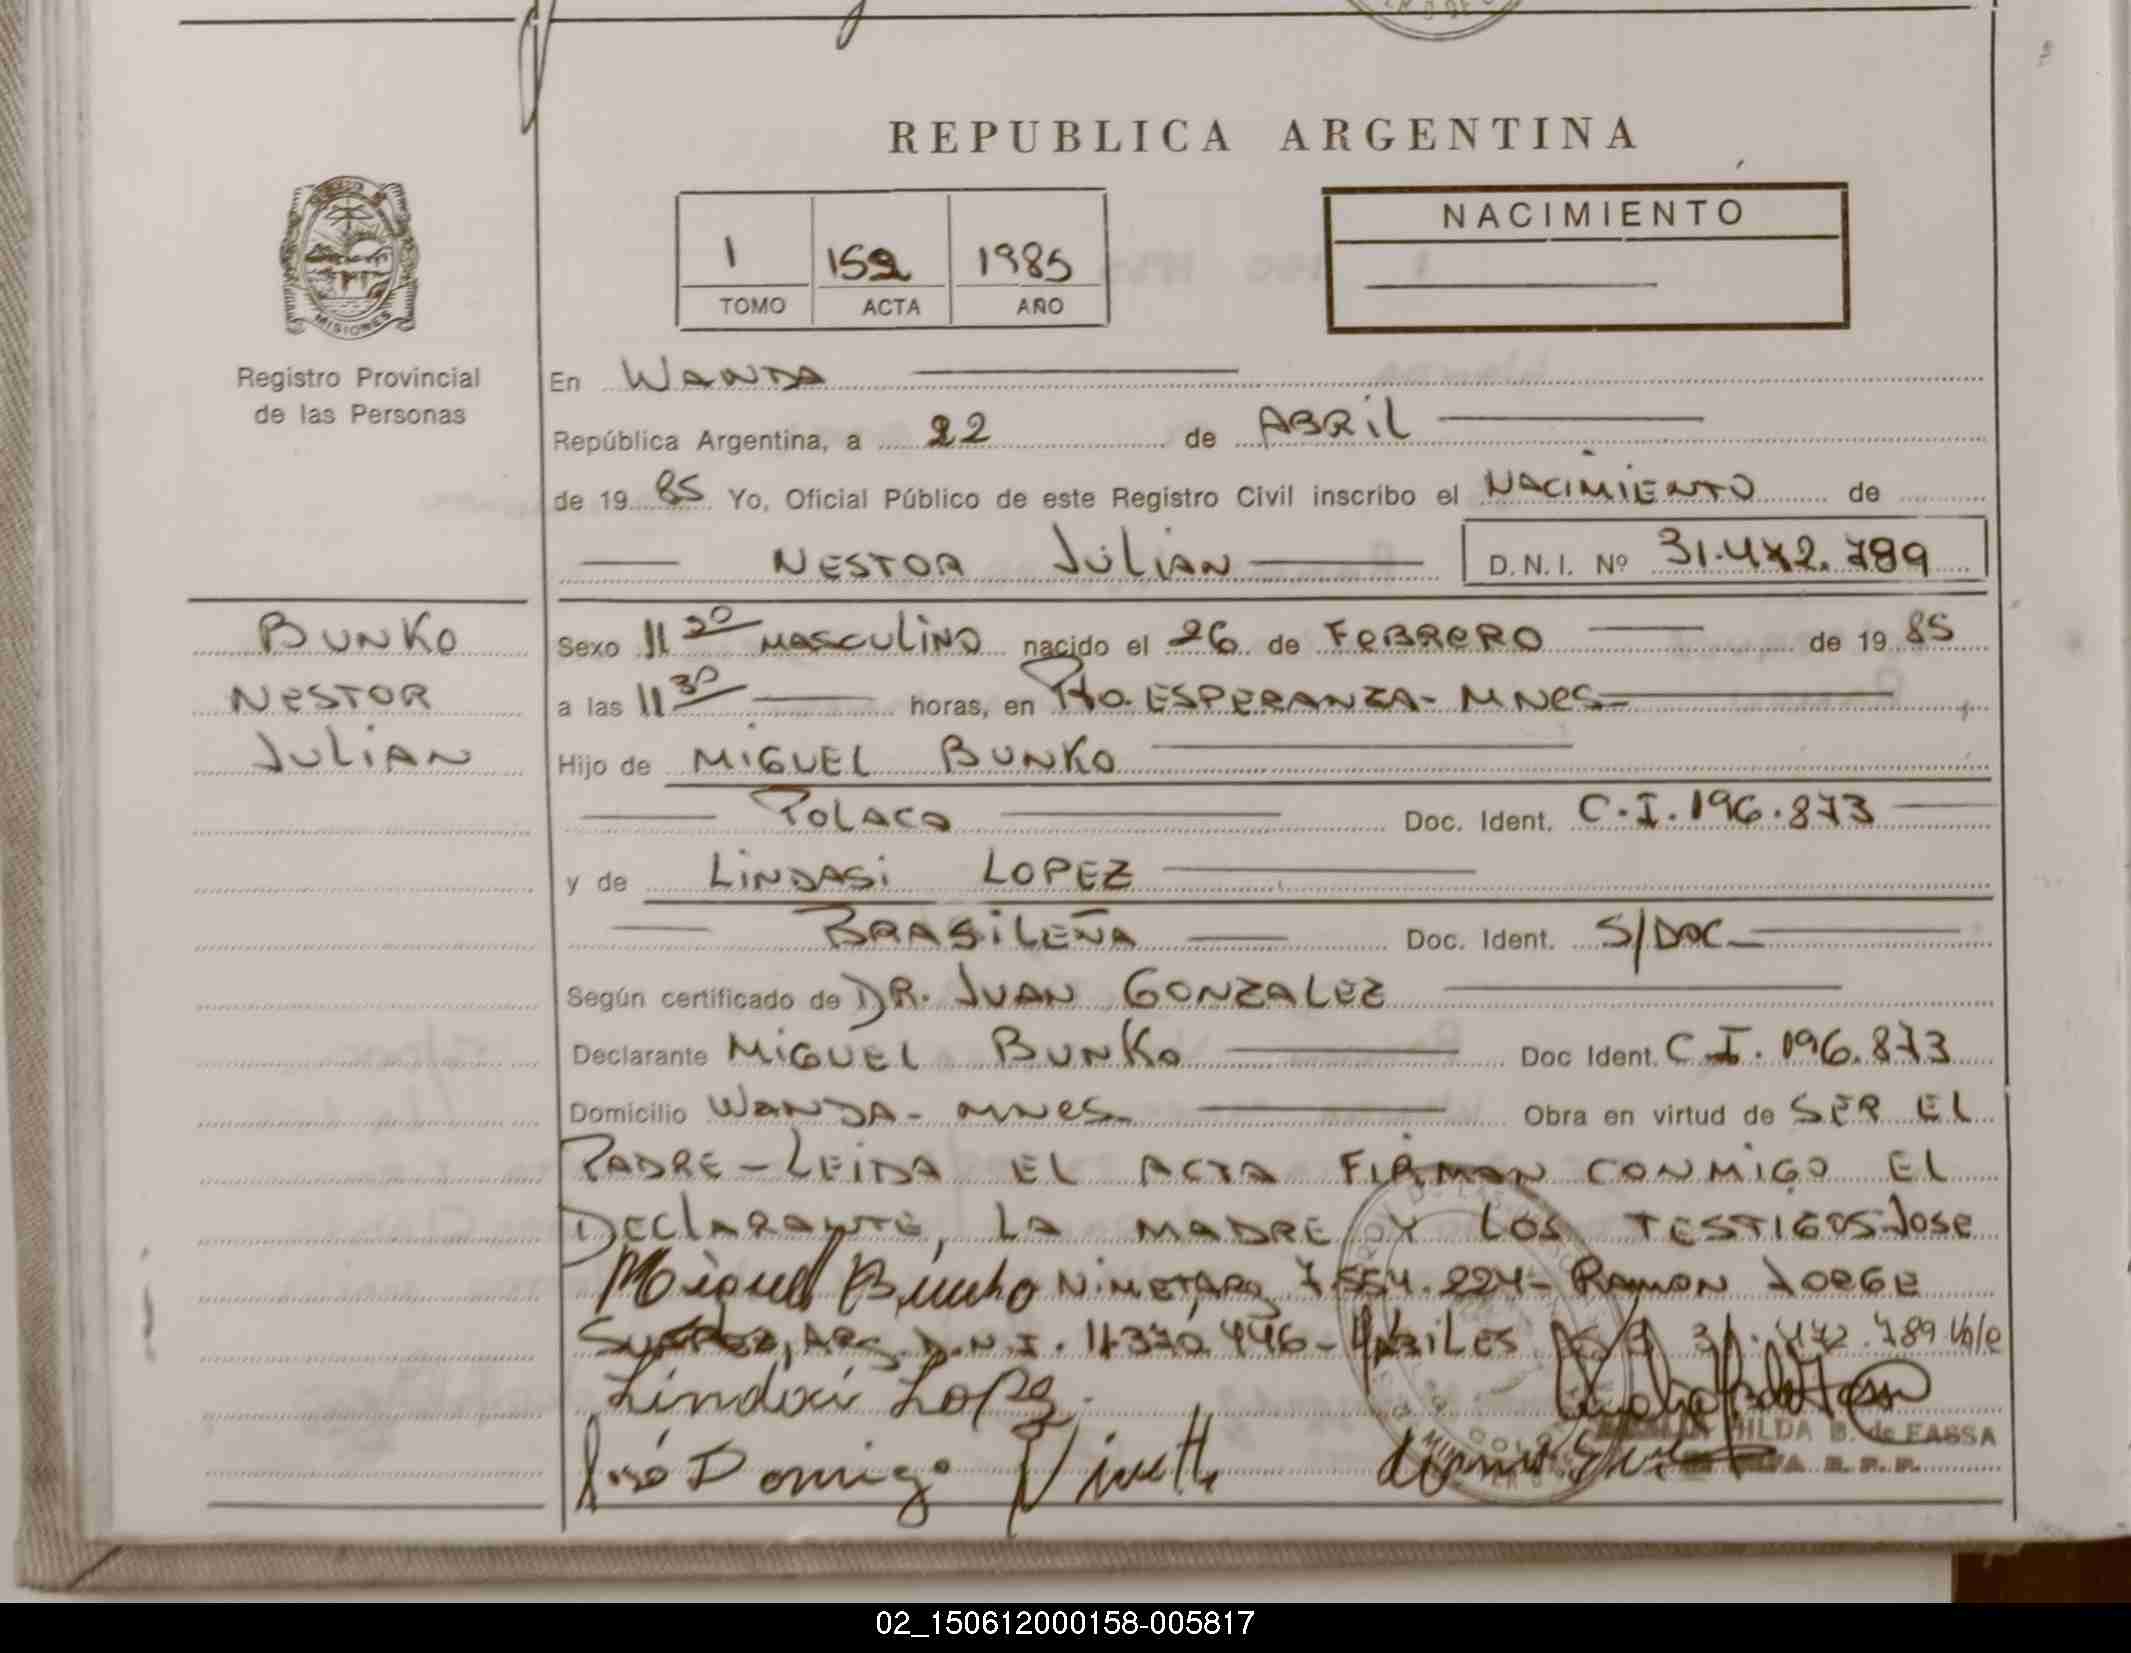 REPUBLICA ARGENTINA
1 152 1985
TOMO ACTA AÑO
NACIMIENTO
MISIONES
Registro Provincial
de las Personas
En WANDA
República Argentina, a 22 de ABRIL
de 19 85 Yo, Oficial Público de este Registro Civil inscribo el NACIMIENTO de
NESTOR JULIAN D.N.I. Nº 31.472.789
BUNKO
NESTOR
JULIAN
Sexo 11 30 MASCULINO nacido el 26 de FEBRERO de 19 85
a las 11 30 horas, en Pto. ESPERANZA - MNES
Hijo de MIGUEL BUNKO
POLACO Doc. Ident. C.I. 196.873
y de LINDASI LOPEZ
BRASILEÑA Doc. Ident. S/DOC
Según certificado de DR. JUAN GONZALEZ
Declarante MIGUEL BUNKO Doc Ident. C.I. 196.873
Domicilio WANDA - MNES Obra en virtud de SER EL
PADRE - LEIDA EL ACTA FIRMAN CONMIGO EL
DECLARANTE, LA MADRE Y LOS TESTIGOS JOSE
Miguel Bunko 7.554.224 - RAMON JORGE
ARG. D.N.I. 11.370.446 - 31.472.789 Vale
Lopez
José Domingo
HILDA B. de FASSA
02_150612000158-005817